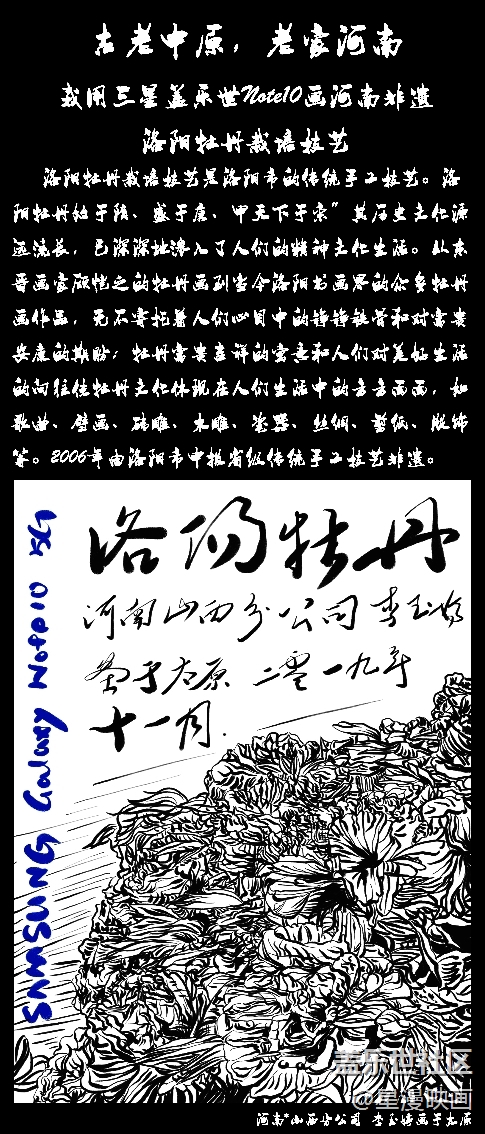 古老中原，老家河南
我用三星盖乐世Note10画河南非遗
洛阳牡丹栽培技艺
洛阳牡丹栽培技艺是洛阳市的传统手工技艺。洛
阳牡丹始于隋、盛于唐、甲天下于宋”其历史文化源
远流长，已深深地渗入了人们的精神文化生活。从东
晋画家顾恺之的牡丹画到当今洛阳书画界的众多牡丹
画作品，无不寄托着人们心目中的铮铮铁骨和对富贵
安康的期盼；牡丹富贵吉祥的寓意和人们对美好生活
的向往使牡丹文化体现在人们生活中的方方面面，如
歌曲、壁画、砖雕、木雕、瓷器、丝绸、剪纸、服饰
等。2006年由洛阳市申报省级传统手工技艺非遗。
SAMSUNG Galaxy Note10 5G
洛阳牡丹
河南山西分公司 李玉
画于太原 二零一九年
十一月.
盖乐世社区
@星漫映画
河南*山西分公司 李玉 画于太原